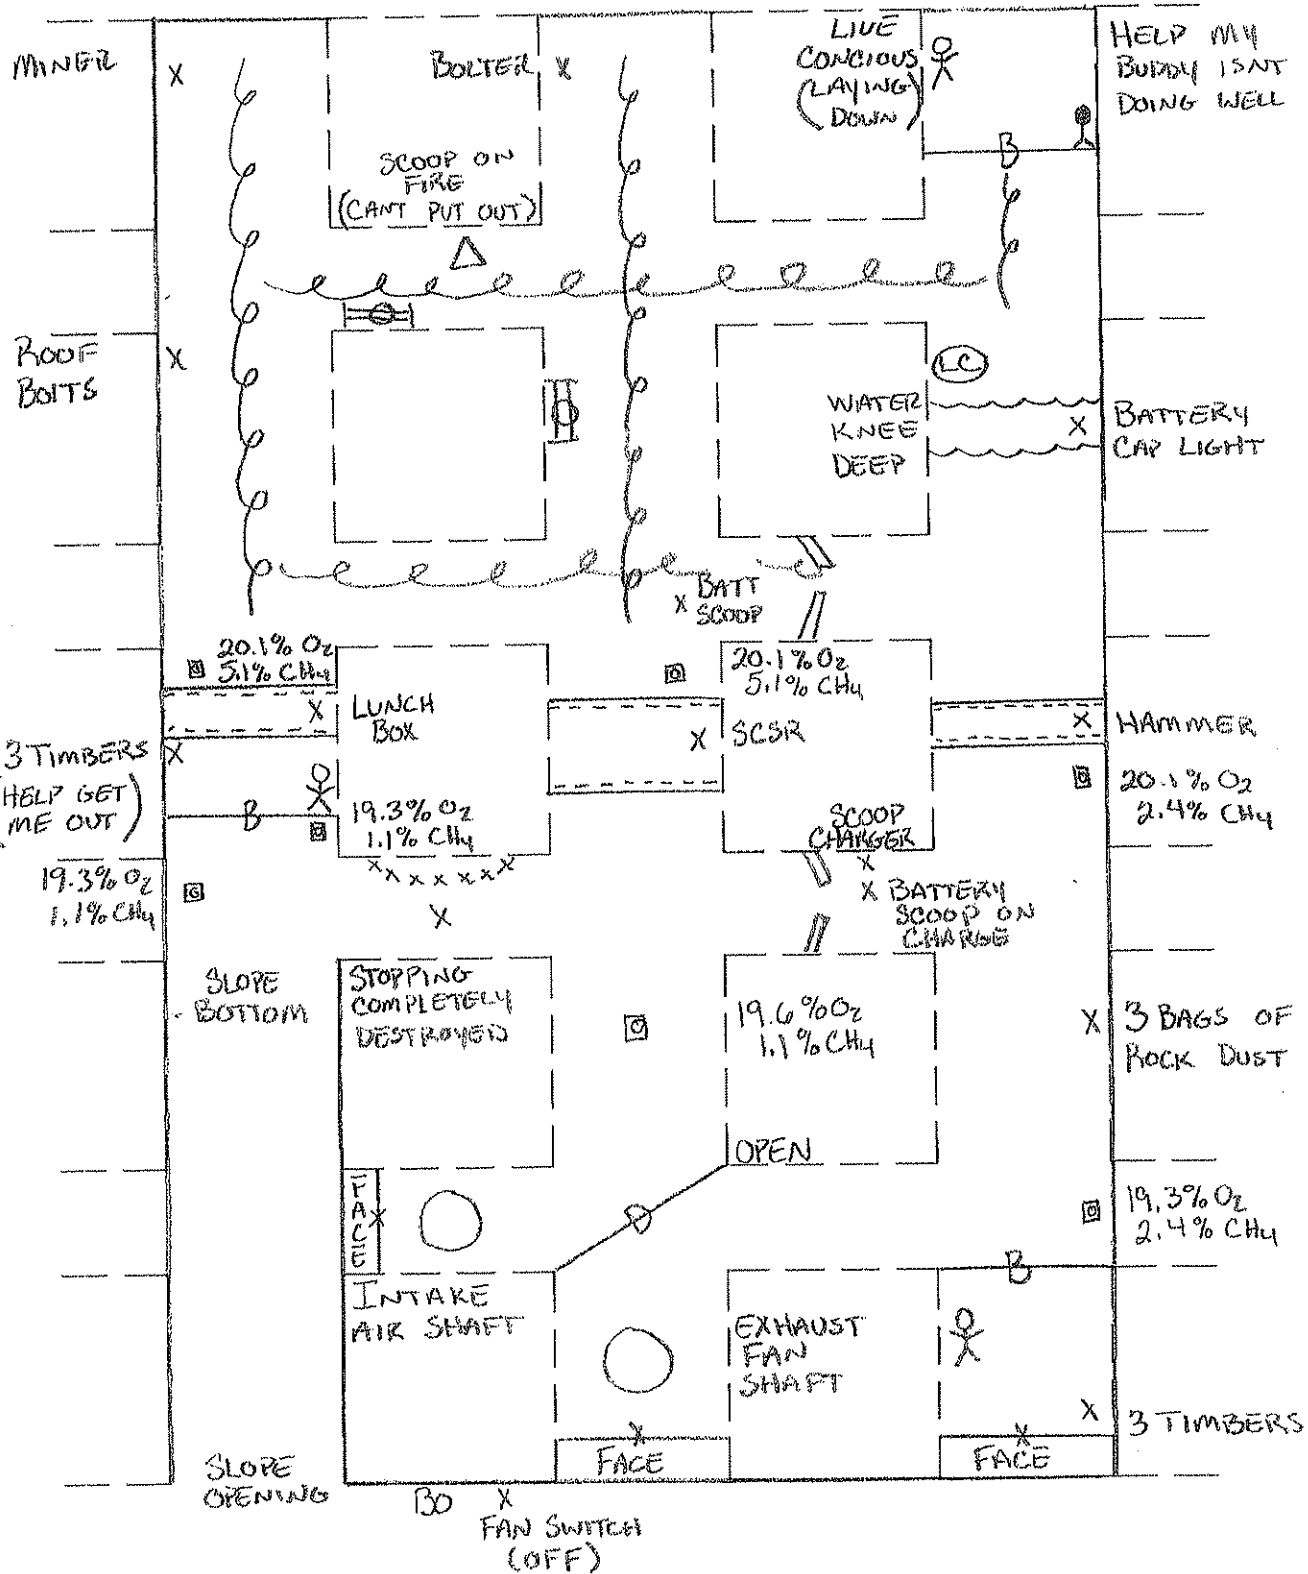 MINER
X
BOLTER X
LIVE
CONCIOUS
(LAYING)
DOWN
HELP MY
BUDDY ISNT
DOING WELL
B
SCOOP ON
FIRE
(CANT PUT OUT)
ROOF
BOLTS
X
LC
WATER
KNEE
DEEP
X
BATTERY
CAP LIGHT
X BATT
SCOOP
20.1% O2
5.1% CH4
20.1% O2
5.1% CH4
X LUNCH
BOX
X SCSR
X HAMMER
3 TIMBERS
X
(HELP GET)
ME OUT
B
19.3% O2
1.1% CH4
20.1% O2
2.4% CH4
SCOOP
CHARGER
X
X X X X X X X
X
19.3% O2
1.1% CH4
X BATTERY
SCOOP ON
CHARGE
SLOPE
BOTTOM
STOPPING
COMPLETELY
DESTROYED
19.6% O2
1.1% CH4
X 3 BAGS OF
ROCK DUST
OPEN
FACE
X
19.3% O2
2.4% CH4
B
INTAKE
AIR SHAFT
EXHAUST
FAN
SHAFT
X 3 TIMBERS
X
FACE
X
FACE
SLOPE
OPENING
BO X
FAN SWITCH
(OFF)